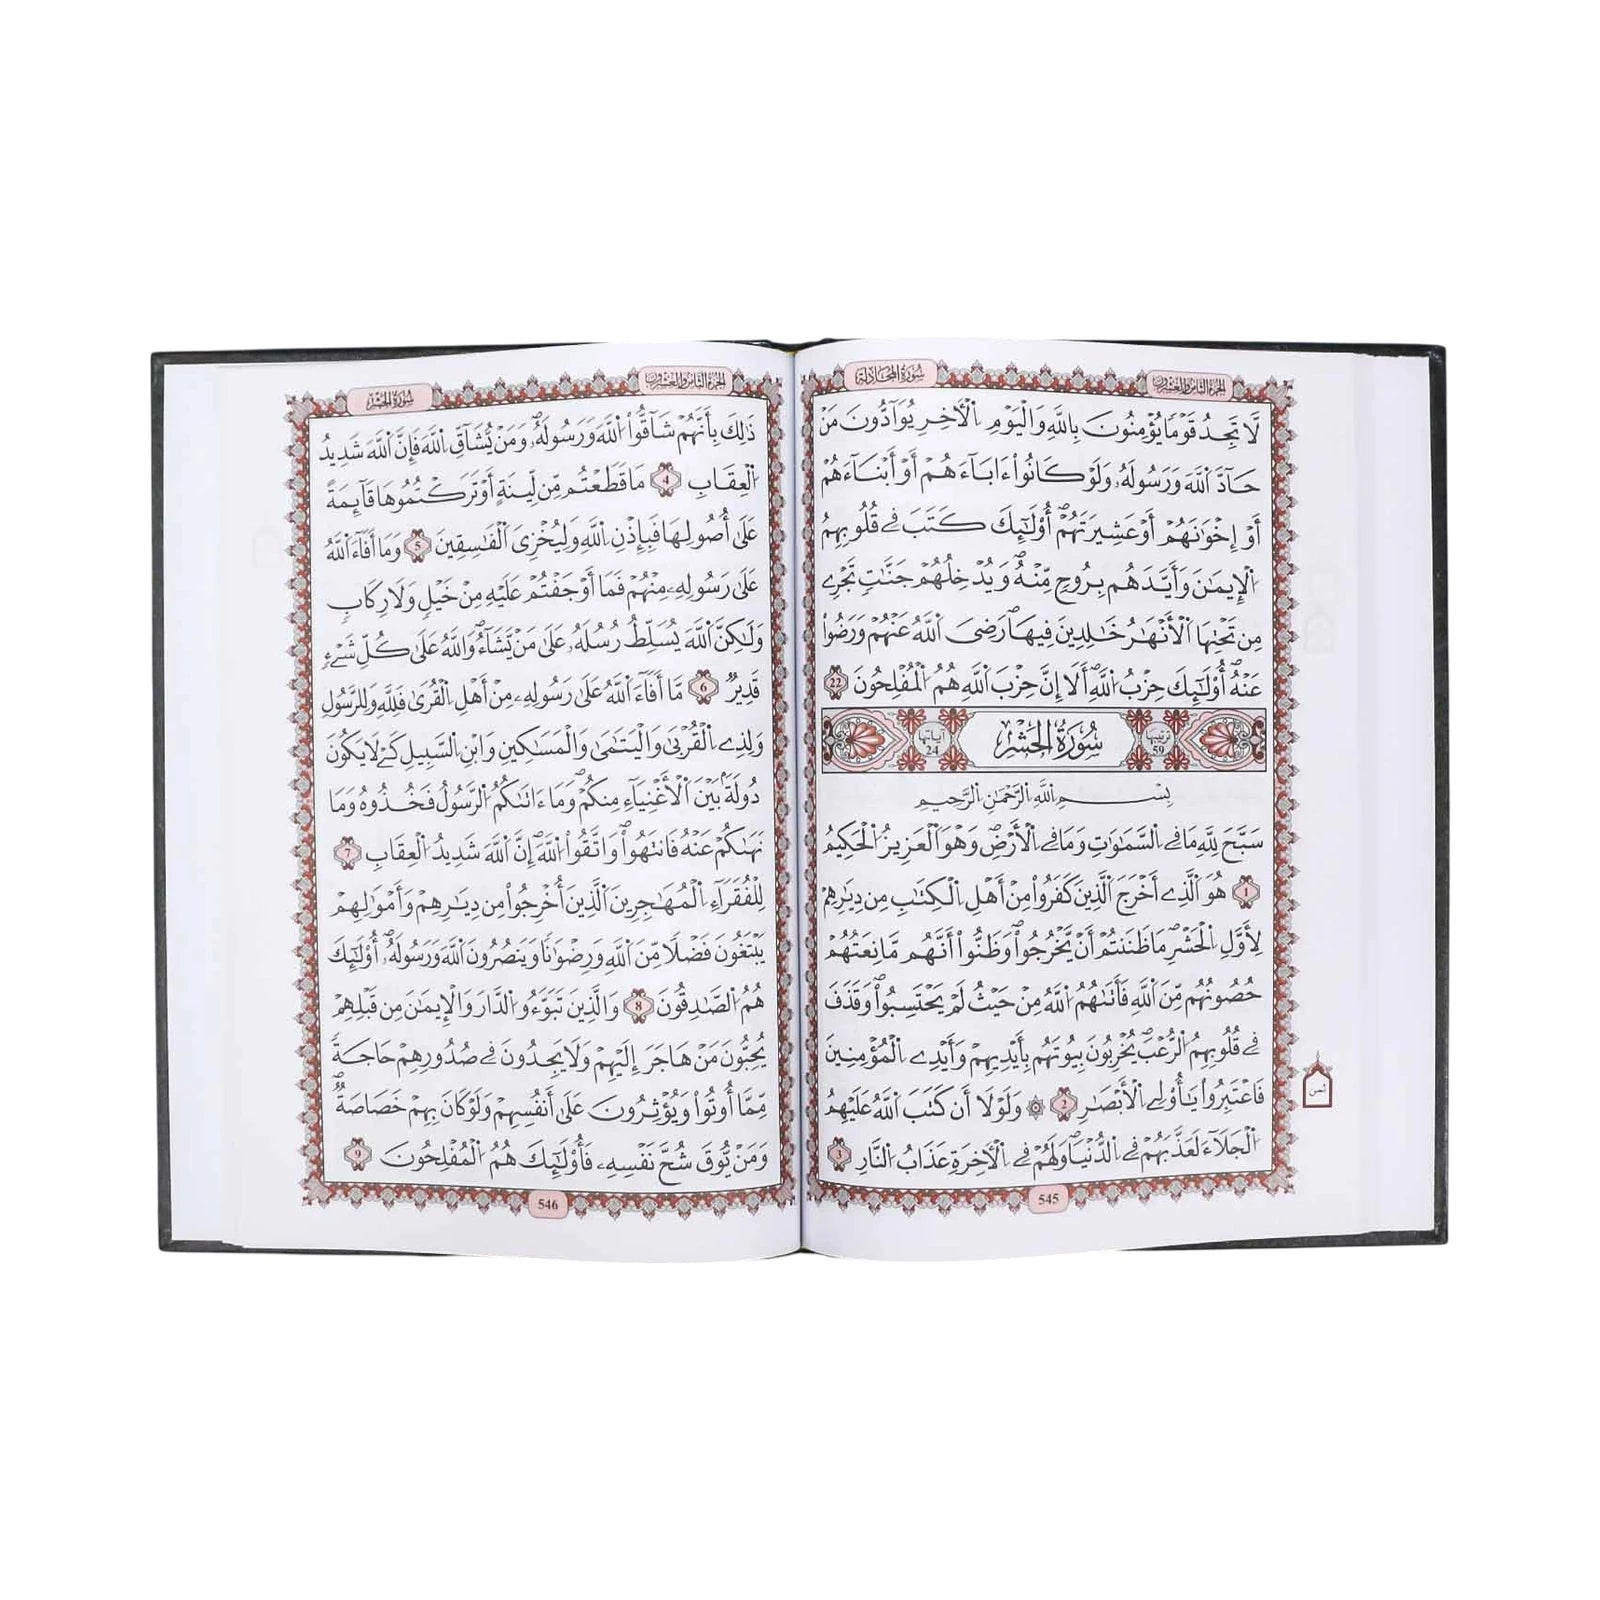 الجزء الثامن والعشرون
سُورَةُ المجَادلة
لَّا تَجِدُ قَوْمًا يُؤْمِنُونَ بِاللَّهِ وَالْيَوْمِ الْأَخِرِ يُوَآدُّونَ مَنْ
حَآدَّ اللَّهَ وَرَسُولَهُۥ وَلَوْ كَانُوٓاْ ءَابَآءَهُمْ أَوْ أَبْنَآءَهُمْ
أَوْ إِخْوَٰنَهُمْ أَوْ عَشِيرَتَهُمْۖ أُوْلَٰٓئِكَ كَتَبَ فِے قُلُوبِهِمُ
الْإِيمَٰنَ وَأَيَّدَهُم بِرُوحٍ مِّنْهُۖ وَيُدْخِلُهُمْ جَنَّٰتٍ تَجْرِے
مِن تَحْتِهَا الْأَنْهَٰرُ خَٰلِدِينَ فِيهَاۖ رَضِىَ اللَّهُ عَنْهُمْ وَرَضُواْ
عَنْهُۖ أُوْلَٰٓئِكَ حِزْبُ اللَّهِۖ أَلَا إِنَّ حِزْبَ اللَّهِ هُمُ الْمُفْلِحُونَ 22
ترتيبها 59 سُورَةُ الحَشْرِ آياتها 24
بِسْمِ اللَّهِ الرَّحْمَٰنِ الرَّحِيمِ
سَبَّحَ لِلَّهِ مَا فِے السَّمَٰوَٰتِ وَمَا فِے الْأَرْضِۖ وَهْوَ الْعَزِيزُ الْحَكِيمُ
1 هُوَ الَّذِے أَخْرَجَ الَّذِينَ كَفَرُواْ مِنْ أَهْلِ الْكِتَٰبِ مِن دِيَٰرِهِمْ
لِأَوَّلِ الْحَشْرِۖ مَا ظَنَنتُمْ أَنْ يَّخْرُجُواْۖ وَظَنُّوٓاْ أَنَّهُم مَّانِعَتُهُمْ
حُصُونُهُم مِّنَ اللَّهِ فَأَتَىٰهُمُ اللَّهُ مِنْ حَيْثُ لَمْ يَحْتَسِبُواْۖ وَقَذَفَ
فِے قُلُوبِهِمُ الرُّعْبَۖ يُخْرِبُونَ بِيُوتَهُم بِأَيْدِيهِمْ وَأَيْدِے الْمُؤْمِنِينَ
فَاعْتَبِرُواْ يَٰٓأُوْلِے الْأَبْصَٰرِ 2 ۞ وَلَوْلَا أَن كَتَبَ اللَّهُ عَلَيْهِمُ
الْجَلَآءَ لَعَذَّبَهُمْ فِے الدُّنْيَاۖ وَلَهُمْ فِے الْأَخِرَةِ عَذَابُ النَّارِ 3
ثمن
545
الجزء الثامن والعشرون
سُورَةُ الحَشْر
ذَٰلِكَ بِأَنَّهُمْ شَآقُّواْ اللَّهَ وَرَسُولَهُۥۖ وَمَنْ يُّشَآقِّ اللَّهَ فَإِنَّ اللَّهَ شَدِيدُ
الْعِقَابِ 4 مَا قَطَعْتُم مِّن لِّينَةٍ أَوْ تَرَكْتُمُوهَا قَآئِمَةً
عَلَىٰٓ أُصُولِهَا فَبِإِذْنِ اللَّهِ وَلِيُخْزِىَ الْفَٰسِقِينَ 5 وَمَا أَفَآءَ اللَّهُ
عَلَىٰ رَسُولِهِۦ مِنْهُمْ فَمَا أَوْجَفْتُمْ عَلَيْهِ مِنْ خَيْلٍ وَلَا رِكَابٍ
وَلَٰكِنَّ اللَّهَ يُسَلِّطُ رُسُلَهُۥ عَلَىٰ مَنْ يَّشَآءُۖ وَاللَّهُ عَلَىٰ كُلِّ شَےْءٍ
قَدِيرٌۖ 6 مَّا أَفَآءَ اللَّهُ عَلَىٰ رَسُولِهِۦ مِنْ أَهْلِ الْقُرَىٰ فَلِلَّهِ وَلِلرَّسُولِ
وَلِذِے الْقُرْبَىٰ وَالْيَتَٰمَىٰ وَالْمَسَٰكِينِ وَابْنِ السَّبِيلِ كَےْ لَا يَكُونَ
دُولَةَۢ بَيْنَ الْأَغْنِيَآءِ مِنكُمْۖ وَمَا ءَاتَىٰكُمُ الرَّسُولُ فَخُذُوهُ وَمَا
نَهَىٰكُمْ عَنْهُ فَانتَهُواْۖ وَاتَّقُواْ اللَّهَۖ إِنَّ اللَّهَ شَدِيدُ الْعِقَابِ 7
لِلْفُقَرَآءِ الْمُهَٰجِرِينَ الَّذِينَ أُخْرِجُواْ مِن دِيَٰرِهِمْ وَأَمْوَٰلِهِمْ
يَبْتَغُونَ فَضْلًا مِّنَ اللَّهِ وَرِضْوَٰنًا وَيَنصُرُونَ اللَّهَ وَرَسُولَهُۥۖ أُوْلَٰٓئِكَ
هُمُ الصَّٰدِقُونَ 8 وَالَّذِينَ تَبَوَّءُو الدَّارَ وَالْإِيمَٰنَ مِن قَبْلِهِمْ
يُحِبُّونَ مَنْ هَاجَرَ إِلَيْهِمْ وَلَا يَجِدُونَ فِے صُدُورِهِمْ حَاجَةً
مِّمَّا أُوتُواْۖ وَيُؤْثِرُونَ عَلَىٰٓ أَنفُسِهِمْ وَلَوْ كَانَ بِهِمْ خَصَاصَةٌۖ
وَمَنْ يُّوقَ شُحَّ نَفْسِهِۦ فَأُوْلَٰٓئِكَ هُمُ الْمُفْلِحُونَ 9
546